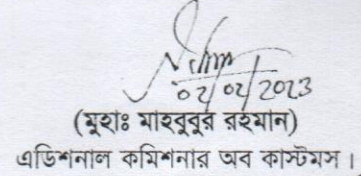 ০২/০২/2023
(মুহাঃ মাহবুবুর রহমান)
এডিশনাল কমিশনার অব কাস্টমস।